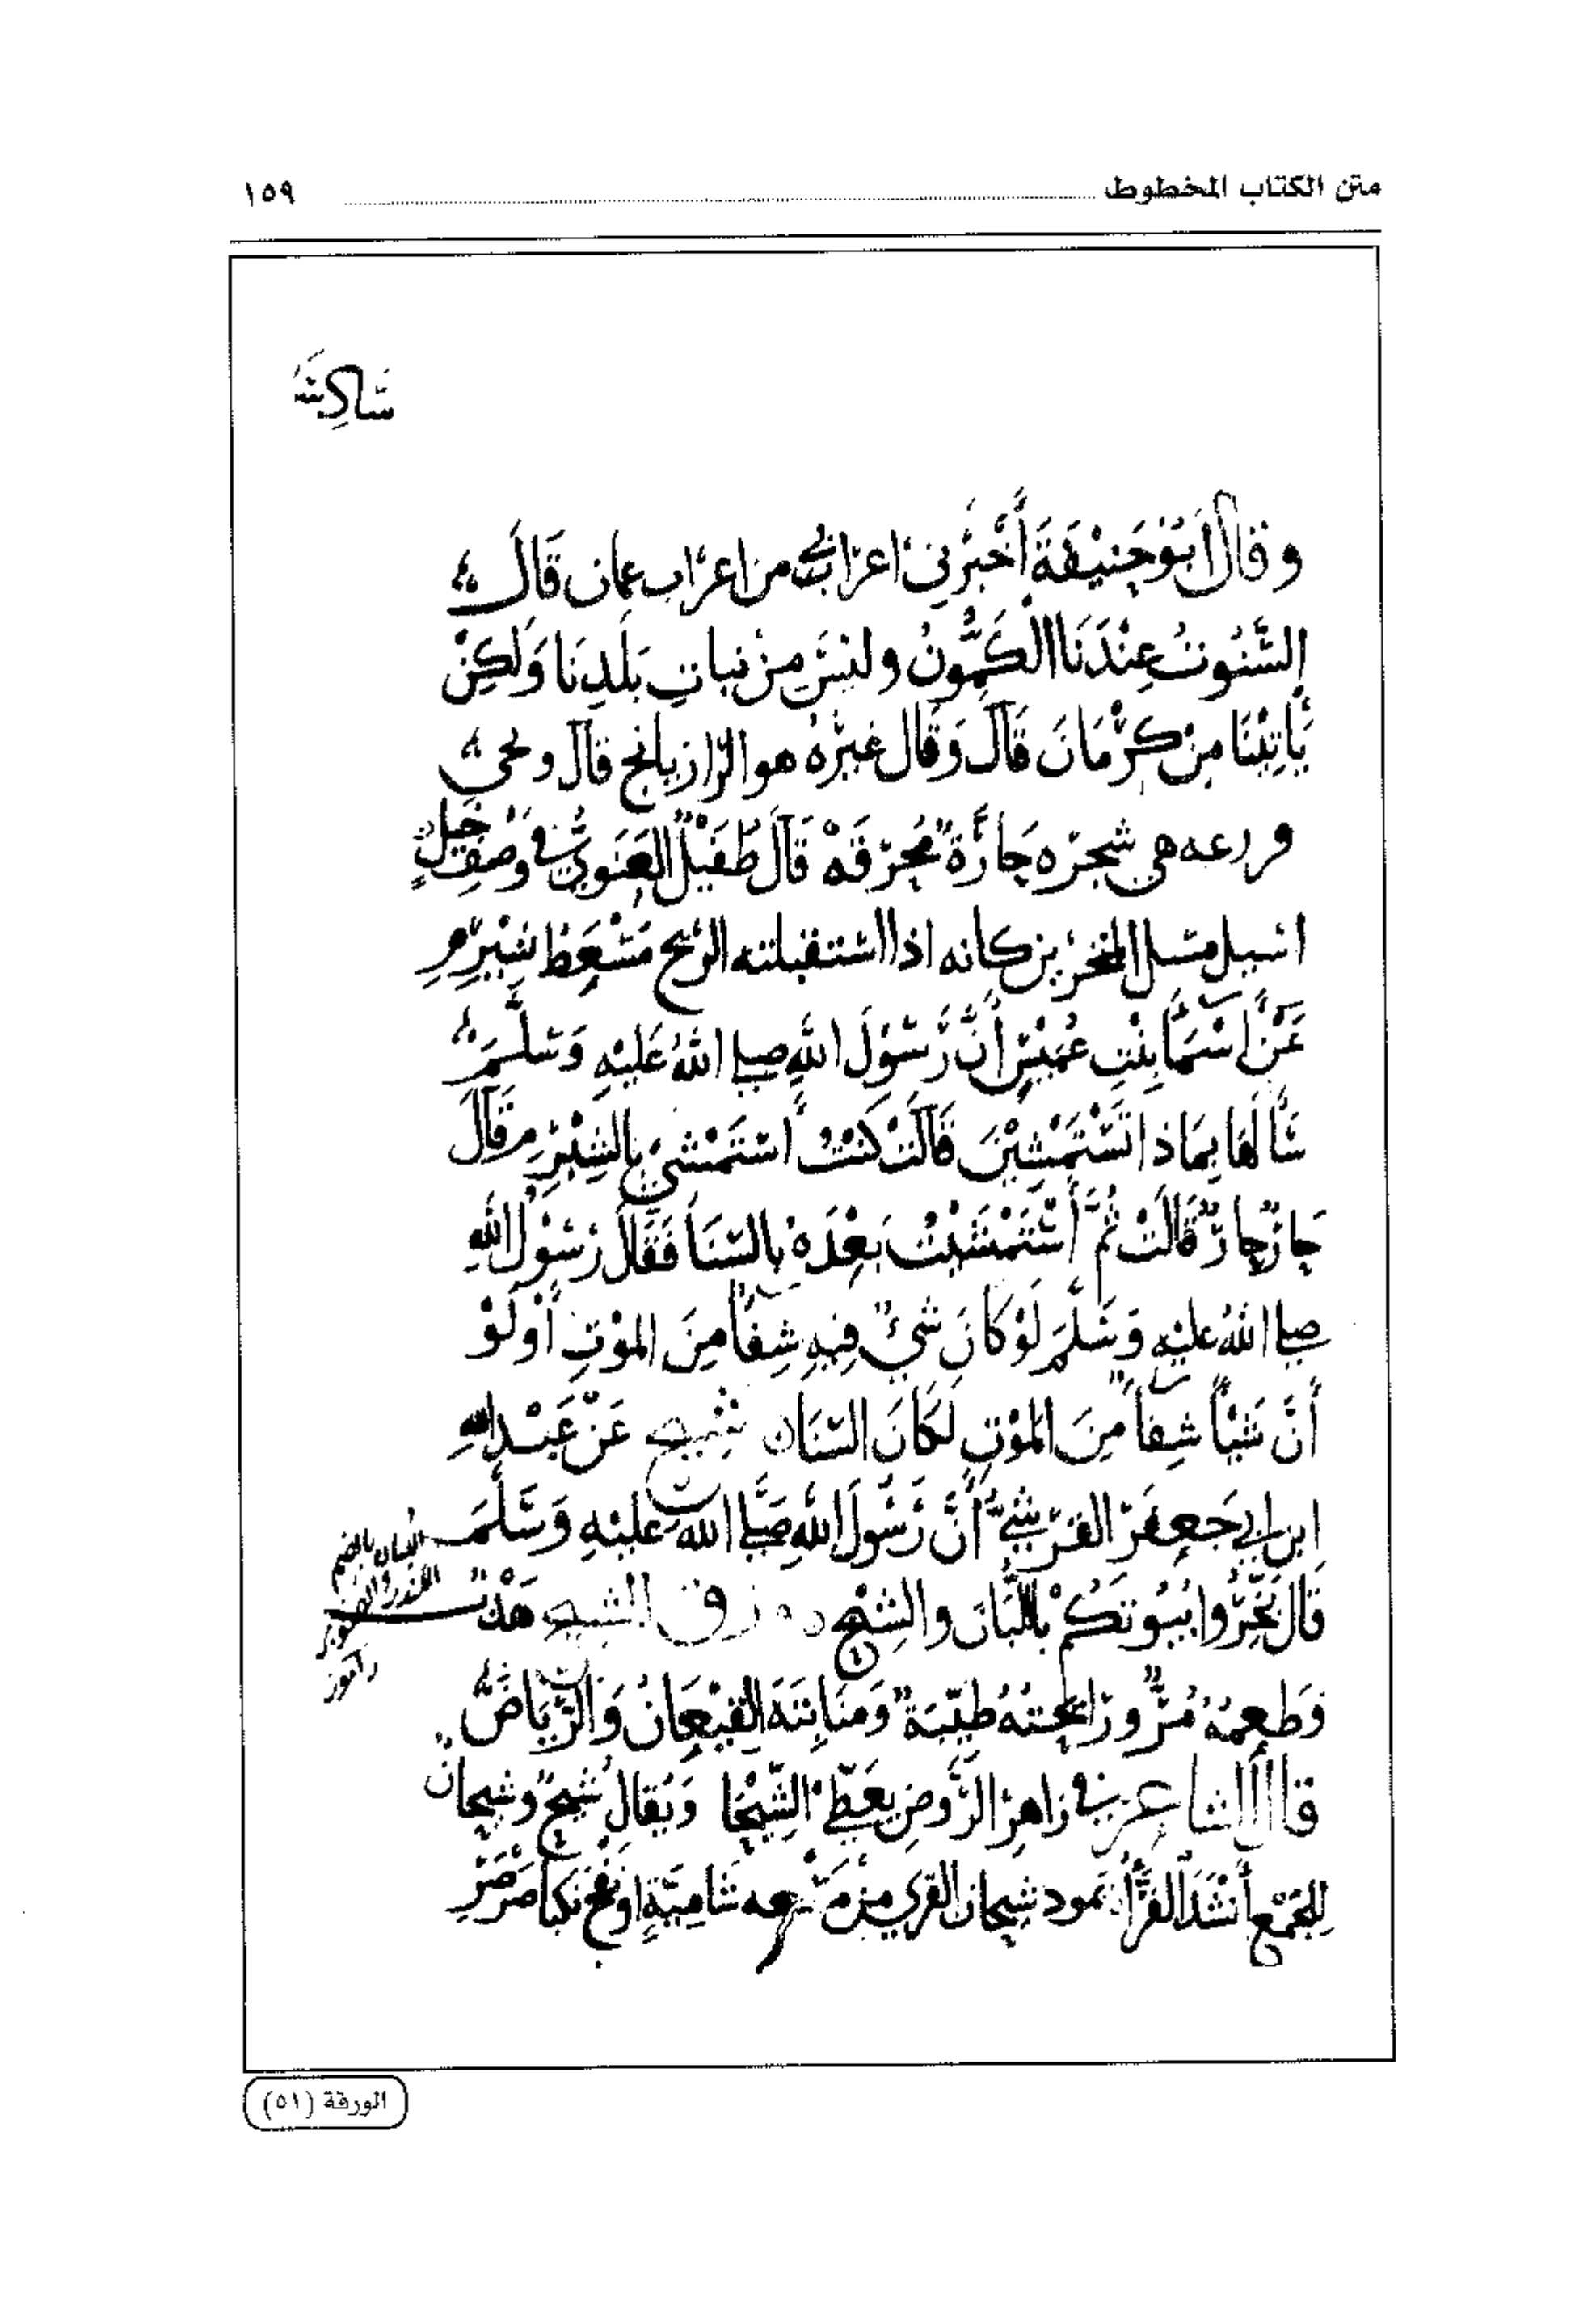 متن الكتاب المخطوط ١٥٩
سَاكِنَة
وقال أبو حَنِيْفَةَ أَخْبَرَنِي اعرابي من اعراب عمان قَالَ
السَّنُوتُ عِنْدَنَا الْكَمُّونُ وليْسَ مِنْ نباتِ بَلَدِنَا وَلَكِنْ
يَأْتِيْنَا مِنْ كَرْمَانَ قَالَ وَقَال غيْرُهُ هو الرازيانج قال و
هي شجره حَارَّةٌ مُحْرِقَهْ قَالَ طُفَيْلٌ الغَنَوِيُّ في وَصْفِ خَيْلٍ
اسيل مسل المنخرين كانه اذا استقبلته الريح مَسْعَط شبْرِمِ
عَنْ أَسْمَآ بِنْتِ عُمَيْسٍ أَنَّ رَسُوْلَ اللهِ صلى اللهُ عَلَيْهِ وَسَلَّمَ
سَأَلَهَا بِمَاذا تَسْتَمْشِيْنَ قَالَتْ كنْتُ أَسْتَمْشي بِالشبْرُمِ قَالَ
حَارٌّ حارٌّ قَالَتْ ثُمَّ أَسْتَمْشَيْتُ بَعْدَهُ بالسَّنَا فَقَالَ رَسُوْلُ اللهِ
صلى اللهُ عليْهِ وَسَلَّمَ لَوْ كَانَ شيْءٌ فِيْهِ شِفَآً مِنَ المَوْتِ أَوْ لَوْ
أَنَّ شَيْأً شِفآً مِنَ المَوْتِ لَكَانَ السَّنَا شيح عَنْ عَبْدِ اللهِ
ابن ابي جَعْفَرَ القُرَشيّ أَنَّ رَسُولَ اللهِ صَلَّى اللهُ عليْهِ وَسَلَّمَ
اللبان بالضم
قَالَ بَخِّرُوا بُيُوتَكُمْ بِاللُّبَانِ والشِيْحِ ورق الشيح هَدْبٌ
وَطَعمُهُ مُرٌّ ورَائحتهُ طَيّبَة وَمَنَابِتَهُ القِيْعَانُ وَالرِّيَاضُ
قال الشاعر في زاهر الرَّوضِ يغطّي الشِّيْحَا وَيُقَالُ شيحٌ وشيحانٌ
لِلْجَمْعِ أَنْشَدَ الفَرَّآ شيحان القرى مِنْ شَامِيَّةٍ او نفح نكبآ صَرْصَرِ
الورقة (٥١)